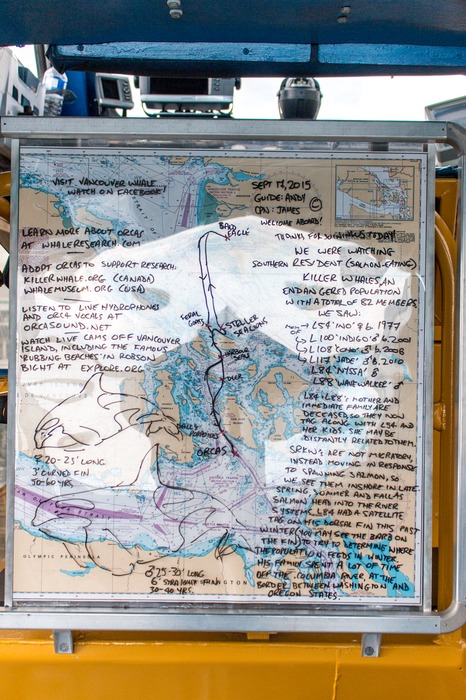 VISIT VANCOUVER WHALE
WATCH ON FACEBOOK!
LEARN MORE ABOUT ORCAS
AT WHALERESEARCH.COM
ADOPT ORCAS TO SUPPORT RESEARCH:
KILLERWHALE.ORG (CANADA)
WHALEMUSEUM.ORG (USA)
LISTEN TO LIVE HYDROPHONES
AND ORCA VOCALS AT
ORCASOUND.NET
WATCH LIVE CAMS OFF VANCOUVER
ISLAND, INCLUDING THE FAMOUS
'RUBBING BEACHES' IN ROBSON
BIGHT AT EXPLORE.ORG
♀ 20-25' LONG
3' CURVED FIN
50-60 YRS.
♂ 25-30' LONG
6' STRAIGHT FIN
30-40 YRS.
BALD
EAGLE
FERAL
GOATS
STELLER
SEALIONS
HARBOUR
SEALS
DEER
DALL'S
PORPOISES
ORCAS
OLYMPIC PENINSULA
SEPT 17, 2015
GUIDE: ANDY
CPN: JAMES
WELCOME ABOARD!
THANKS FOR JOINING US TODAY
WE WERE WATCHING
SOUTHERN RESIDENT (SALMON-EATING)
KILLER WHALES, AN
ENDANGERED POPULATION
WITH A TOTAL OF 82 MEMBERS.
WE SAW:
L54 'INO' ♀ b. 1977
L100 'INDIGO' ♂ b. 2001
L108 'COHO' ♂ b. 2006
L117 'JADE' ♂ b. 2010
L84 'NYSSA' ♂
L88 'WAVEWALKER' ♂
L84 + L88'S MOTHER AND
IMMEDIATE FAMILY ARE
DECEASED, SO THEY NOW
TAG ALONG WITH L54 AND
HER KIDS. SHE MAY BE
DISTANTLY RELATED TO THEM.
SRKW'S ARE NOT MIGRATORY,
INSTEAD MOVING IN RESPONSE
TO SPAWNING SALMON, SO
WE SEE THEM INSHORE IN LATE
SPRING, SUMMER AND FALL AS
SALMON HEAD INTO THE RIVER
SYSTEMS. L84 HAD A SATELLITE
TAG ON HIS DORSAL FIN THIS PAST
WINTER (YOU MAY SEE THE BARB ON
THE FIN) TO TRY TO DETERMINE WHERE
THE POPULATION FEEDS IN WINTER.
HIS FAMILY SPENT A LOT OF TIME
OFF THE COLUMBIA RIVER, AT THE
BORDER BETWEEN WASHINGTON AND
OREGON STATES.